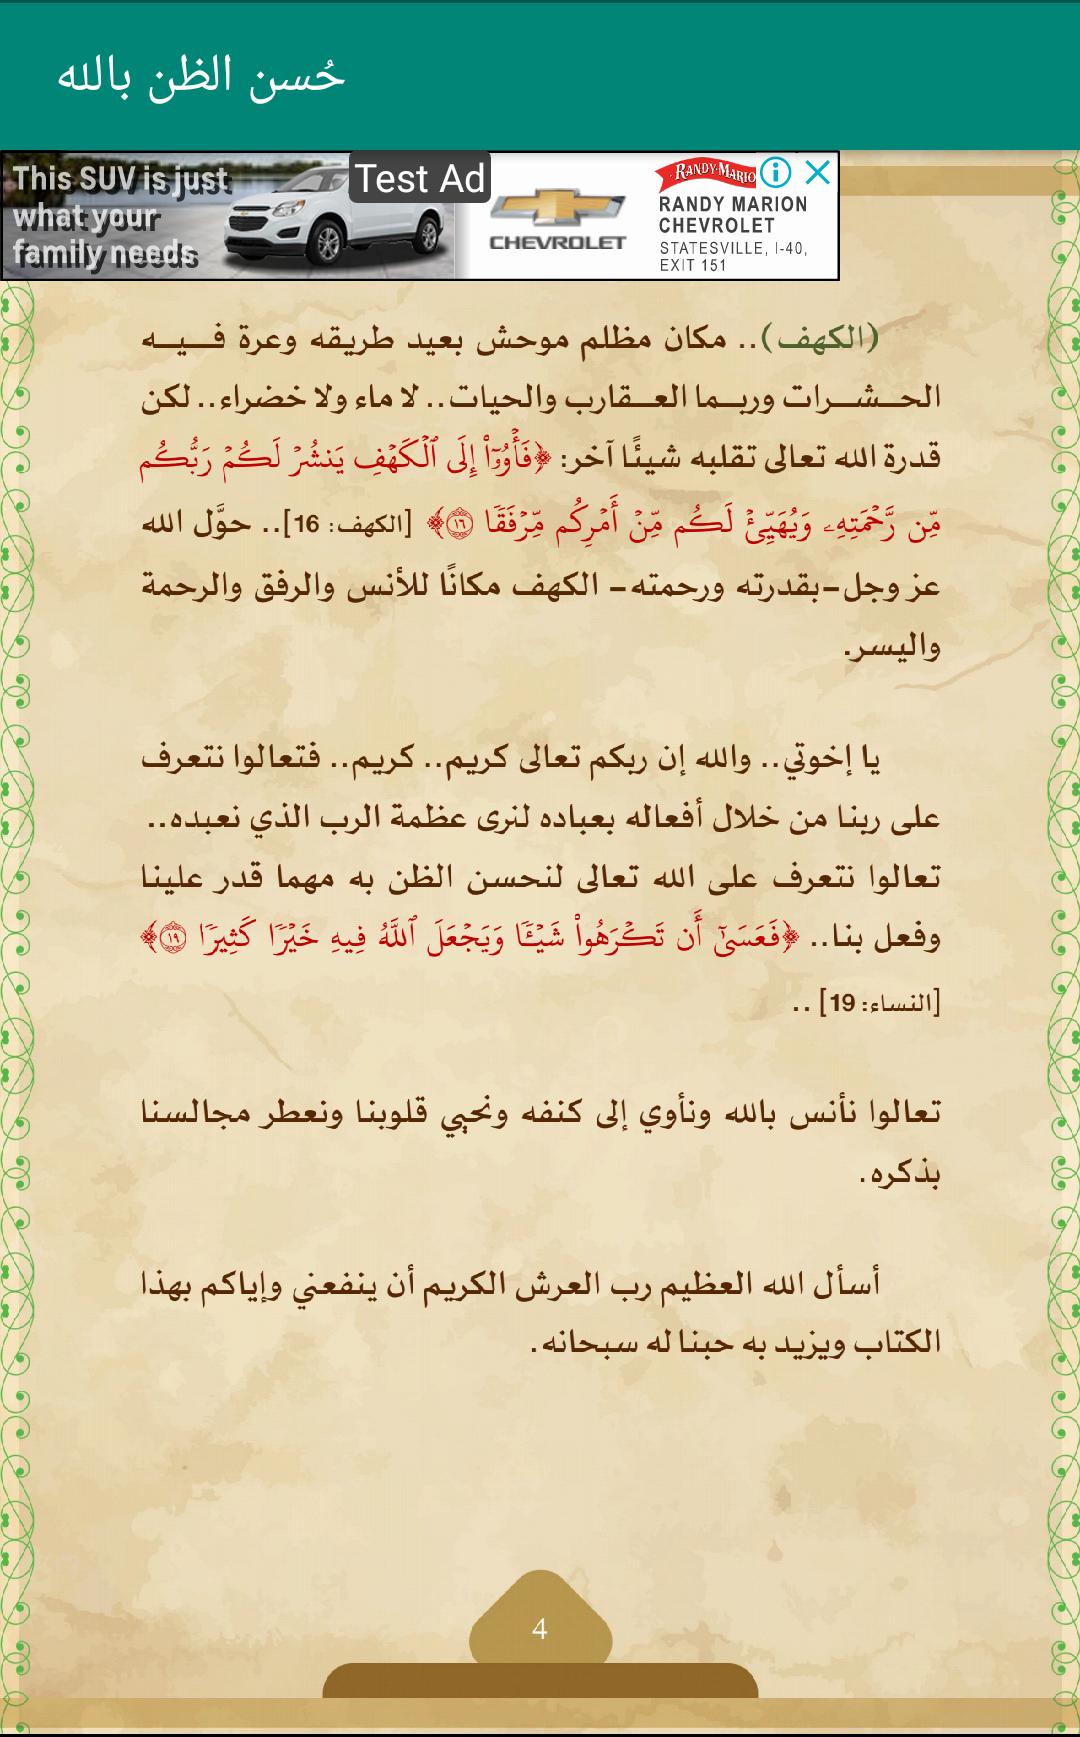 حُسن الظن بالله
This SUV is just
what your
family needs
Test Ad
CHEVROLET
RANDY MARION
RANDY MARION
CHEVROLET
STATESVILLE, I-40,
EXIT 151
(الكهف).. مكان مظلم موحش بعيد طريقه وعرة فـــيـــه
الحـــشـــرات وربـــما العـــقارب والحيات.. لا ماء ولا خضراء.. لكن
قدرة الله تعالى تقلبه شيئًا آخر: ﴿فَأْوُۥٓا۟ إِلَى ٱلْكَهْفِ يَنشُرْ لَكُمْ رَبُّكُم
مِّن رَّحْمَتِهِۦ وَيُهَيِّئْ لَكُم مِّنْ أَمْرِكُم مِّرْفَقًا ١٦﴾ [الكهف: 16].. حوَّل الله
عز وجل-بقدرته ورحمته- الكهف مكانًا للأنس والرفق والرحمة
واليسر.
يا إخوتي.. والله إن ربكم تعالى كريم.. كريم.. فتعالوا نتعرف
على ربنا من خلال أفعاله بعباده لنرى عظمة الرب الذي نعبده..
تعالوا نتعرف على الله تعالى لنحسن الظن به مهما قدر علينا
وفعل بنا.. ﴿فَعَسَىٰٓ أَن تَكْرَهُوا۟ شَيْـًٔا وَيَجْعَلَ ٱللَّهُ فِيهِ خَيْرًا كَثِيرًا ١٩﴾
[النساء: 19] ..
تعالوا نأنس بالله ونأوي إلى كنفه ونحيي قلوبنا ونعطر مجالسنا
بذكره.
أسأل الله العظيم رب العرش الكريم أن ينفعني وإياكم بهذا
الكتاب ويزيد به حبنا له سبحانه.
4